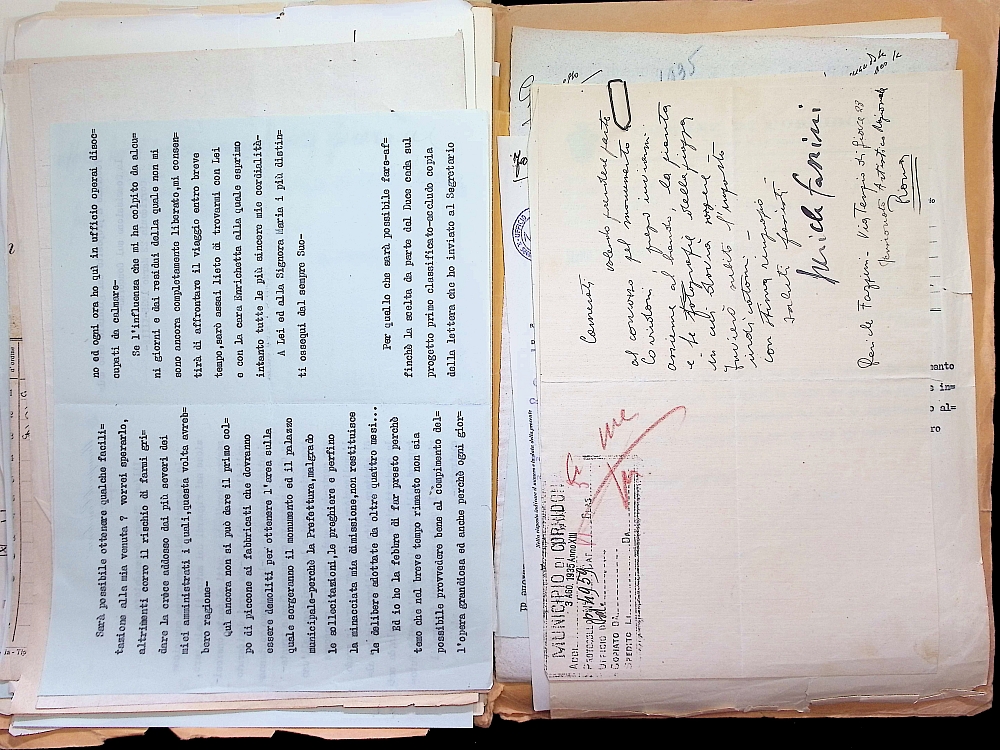 Sarà possibile ottenere qualche facili=
tazione alla mia venuta ? vorrei sperarlo,
altrimenti corro il rischio di farmi gri=
dare la croce addosso dai più severi dei
miei amministrati i quali, questa volta avreb=
bero ragione-
Quì ancora non si può dare il primo col=
po di piccone ai fabbricati che dovranno
essere demoliti per ottenere l'area sulla
quale sorgeranno il monumento ed il palazzo
municipale-perchè la Prefettura, malgrado
le sollecitazioni, le preghiere e perfino
la minacciata mia dimissione, non restituisce
le delibere adottate da oltre quattro mesi...
Ed io ho la febbre di far presto perchè
temo che nel breve tempo rimasto non sia
possibile provvedere bene al compimento del=
l'opera grandiosa ed anche perchè ogni gior=
no ed ogni ora ho quì in ufficio operai disoc=
cupati da calmare-
Se l'influenza che mi ha colpito da alcu=
ni giorni e dai residui della quale non mi
sono ancora completamente liberato, mi consen=
tirà di affrontare il viaggio entro breve
tempo, sarò assai lieto di trovarmi con Lei
e con la cara Enrichetta alla quale esprimo
intanto tutte le più sincere mie cordialità-
A Lei ed alla Signora Maria i più distin=
ti ossequi dal sempre Suo-
Per quello che sarà possibile fare-af=
finchè la scelta da parte del Duce cada sul
progetto primo classificato-accludo copia
della lettera che ho inviato al Segretario
1935
MUNICIPIO DI CORRIDONIA
3 AGO. 1935 Anno XIII
PROTOCOLLO N. 4959
UFFICIO
COPIATO DA
SPEDITO LI DA
Camerati
volendo prendere parte
al concorso pel monumento a
Corridoni prego inviarmi
assieme al bando la pianta
e le fotografie della piazza
in cui dovrà sorgere
Invierò subito l'importo
indicatomi.
con stima ringrazio
Saluti fascisti
Pericle Fazzini
Pericle Fazzini - Via Tempio di Giove 23
Pensionato Artistico
Roma